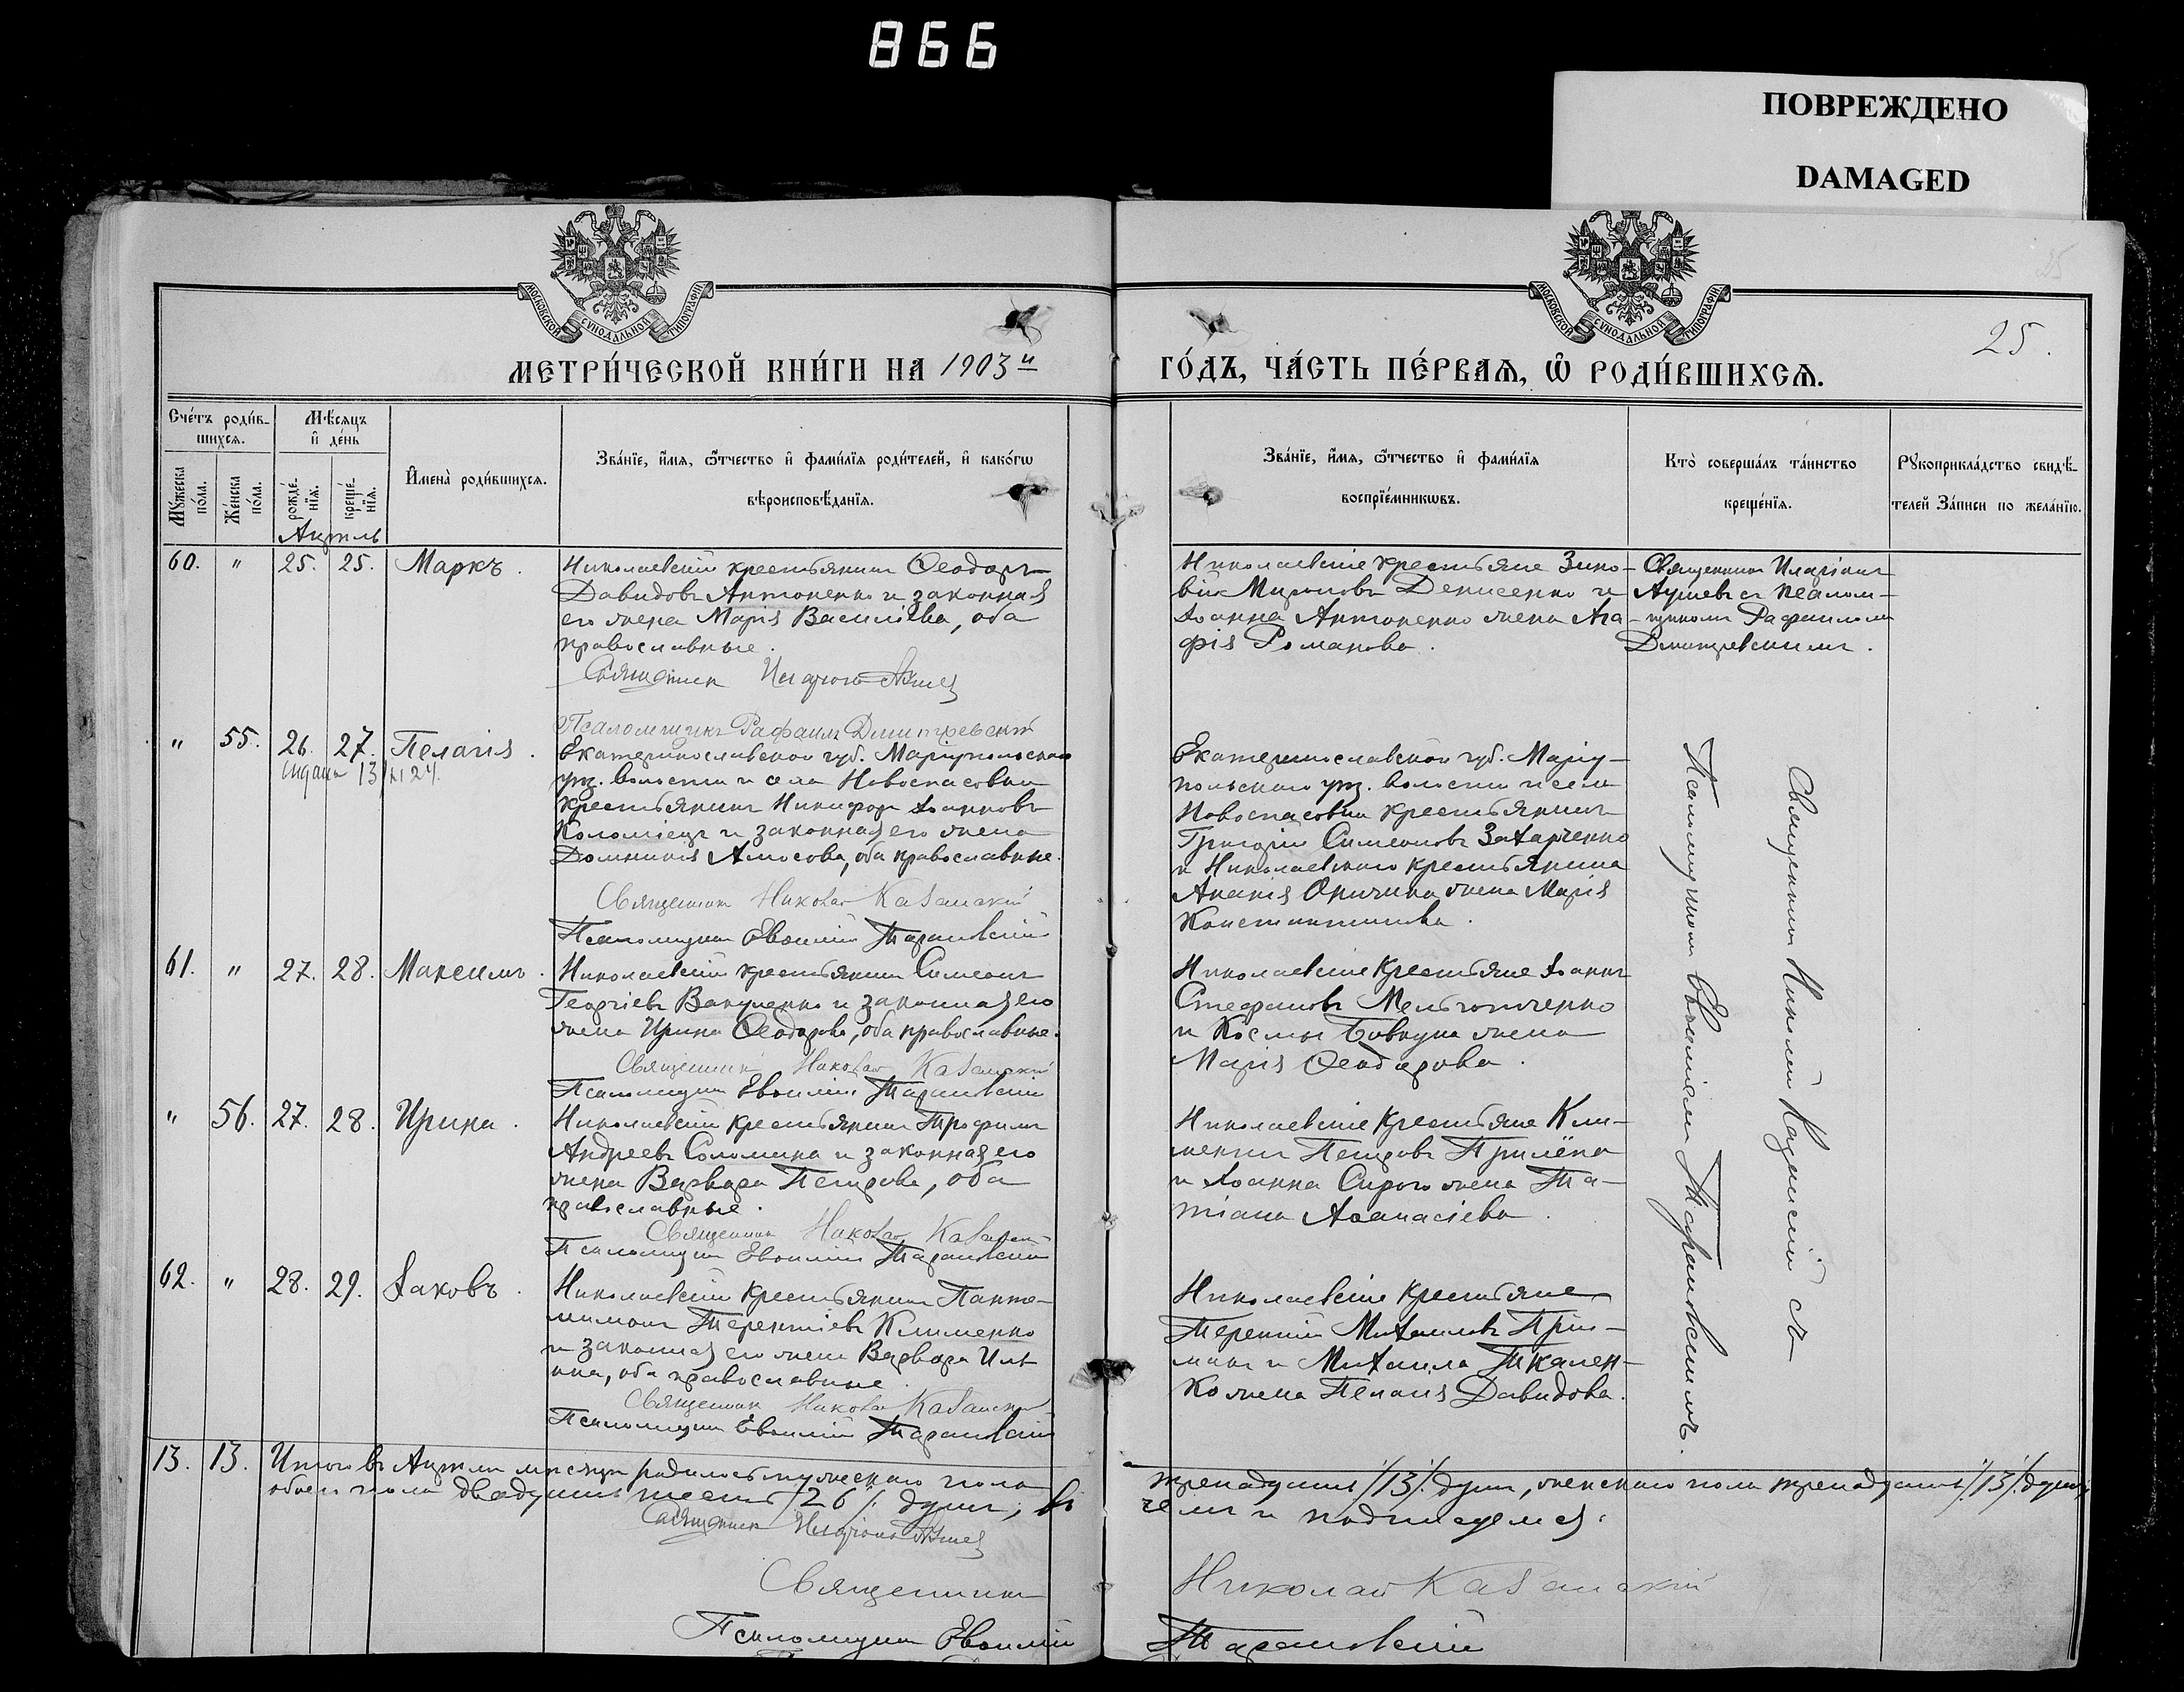 866
ПОВРЕЖДЕНО
DAMAGED
МОСКОВСКОЙ СѴНОДАЛЬНОЙ ТИПОГРАФІИ
МОСКОВСКОЙ СѴНОДАЛЬНОЙ ТИПОГРАФІИ
25
25.
МЕТРИ́ЧЕСКОЙ КНИ́ГИ НА 1903й
ГО́ДЪ, ЧА́СТЬ ПЕ́РВАЯ, Ѽ РОДИ́ВШИХСЯ.
Сче́тъ роди́в-
шихся.
Мꙋ́жеска по́ла.
Же́нска по́ла.
Мѣ́сяцъ
и҆ де́нь
рожде́-нїя.
креще́-нїя.
И҆мена̀ роди́вшихся.
Зва́нїе, и҆́мя, ѻ҆́тчество и҆ фами́лїя роди́телей, и҆ како́гѡ
вѣроисповѣ́данїя.
Зва́нїе, и҆́мя, ѻ҆́тчество и҆ фами́лїя
воспрїе́мникѡвъ.
Кто̀ соверша́лъ та́инство
креще́нїя.
Рꙋкоприкла́дство свидѣ́-
телей За́писи по жела́нїю.
Апрѣль
60. " 25. 25. Маркъ.
Николаевскій крестьянинъ Ѳеодоръ
Давидовъ Антоненко и законная
его жена Марія Василіева, оба
православные.
Священникъ Иларіонъ
Псаломщикъ Рафаилъ Дмитревскій
Николаевскіе крестьяне Зино-
вій Мироновъ Денисенко и
Іоанна Антоненко жена Ага-
фія Романова.
Священникъ Иларіонъ
съ псалом-
щикомъ Рафаиломъ
Дмитревскимъ.
" 55. 26. 27. Пелагія.
выдана 13 № 24.
Екатеринославской губ. Маріупольскаго
уѣз. волости и села Новоспасовки
крестьянинъ Никифоръ Іоанновъ
Коломіецъ и законная его жена
Домникія Амосова, оба православные.
Священникъ Николай Казанскій
Псаломщикъ Евѳимій Тарановскій
Екатеринославской губ. Маріу-
польскаго уѣз. волости и села
Новоспасовки крестьянинъ
Григорій Симеоновъ Захарченко
и Николаевскаго крестьянина
Ананія жена Марія
Константинова.
Священникъ Николай Казанскій съ
Псаломщикомъ Евѳиміемъ Тарановскимъ.
61. " 27. 28. Максимъ.
Николаевскій крестьянинъ Симеонъ
Георгіевъ Вакуленко и законная его
жена Ирина Ѳеодорова, оба православные.
Священникъ Николай Казанскій
Псаломщикъ Евѳимій Тарановскій
Николаевскіе крестьяне Іоаннъ
Стефановъ
и Космы Бовкуна жена
Марія Ѳеодорова.
" 56. 27. 28. Ирина.
Николаевскій крестьянинъ Трофимъ
Андреевъ Соломина и законная его
жена Варвара Петрова, оба
православные.
Священникъ Николай Казанскій
Псаломщикъ Евѳимій Тарановскій
Николаевскіе крестьяне Кли-
ментъ Петровъ
и Іоанна Сирого жена Та-
тіана Аѳанасіева.
62. " 28. 29. Іаковъ.
Николаевскій крестьянинъ Панте-
лимонъ Терентіевъ Клименко
и законная его жена Варвара Иль-
ина, оба православные.
Священникъ Николай Казанскій
Псаломщикъ Евѳимій Тарановскій
Николаевскіе крестьяне
Терентій Михаиловъ
и Михаила Ткален-
ко жена Пелагія Давидова.
13. 13. Итого въ Апрѣлѣ мѣсяцѣ родилось мужескаго пола тринадцать /13/ душъ, женскаго пола тринадцать /13/ душъ,
обоего пола двадцать шесть /26/ душъ, въ чемъ и подписуемся:
Священникъ Иларіонъ
Священникъ Николай Казанскій
Псаломщикъ Евѳимій Тарановскій